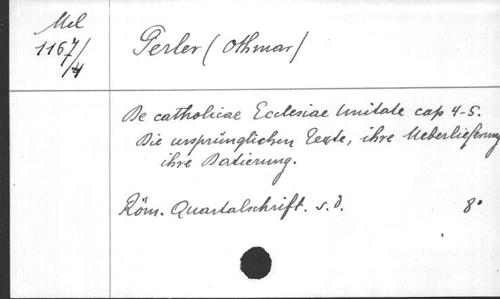 Mel
1167/
/4
Perler (Othmar)
De catholicae Ecclesiae Unitate cap 4-5.
Die ursprünglichen Texte, ihre Ueberlieferung
ihre Datierung.
Röm. Quartalschrift. s.d. 8°